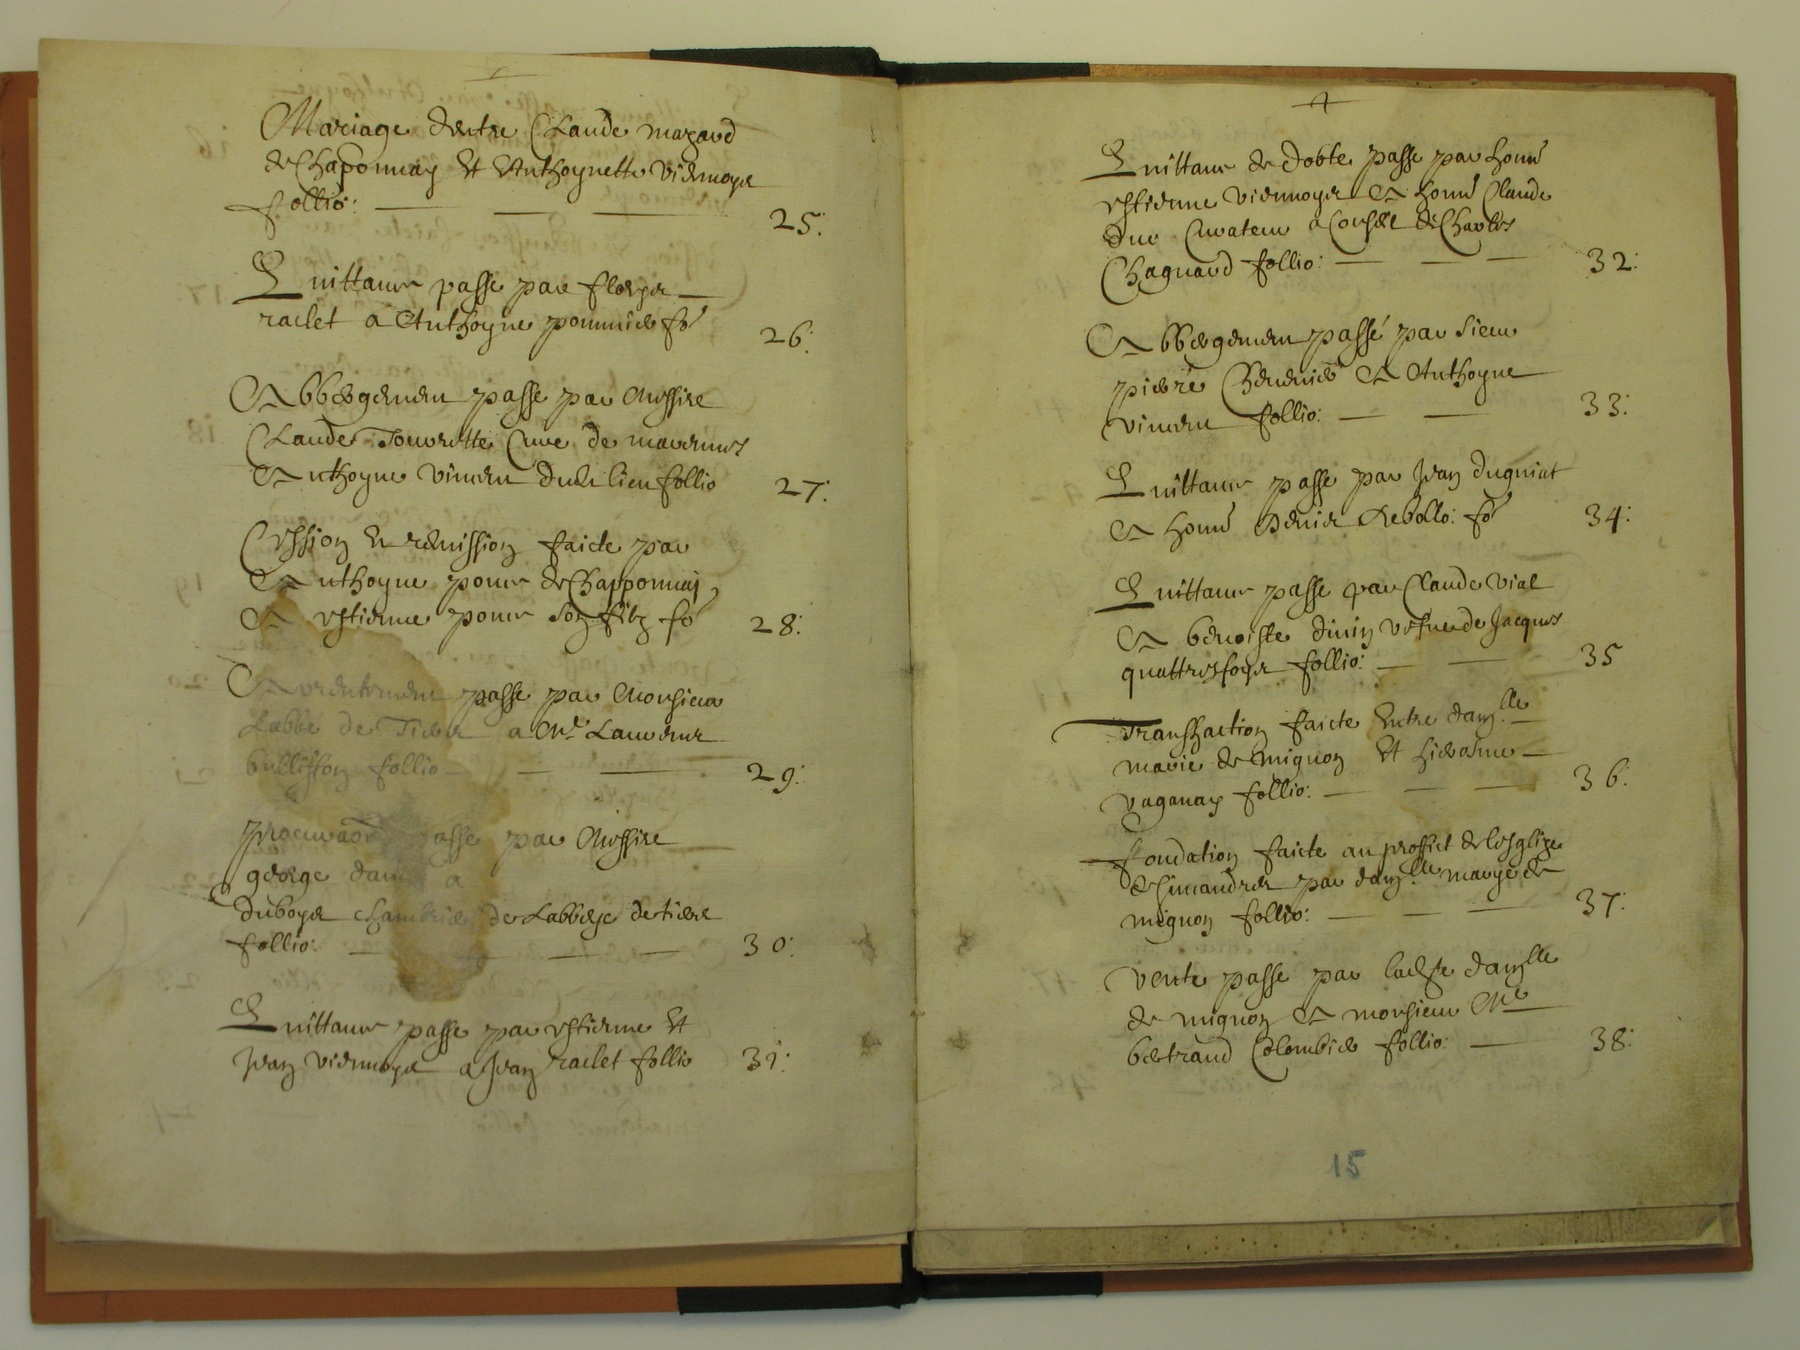 Mariage dentre Claude mazard
de Chaponnay Et Anthoynette Viennoys
follio: 25:
Quittance passe par
raclet a Anthoyne pommier fo 26:
Abbergement passe par Messire
Claude Tourette Cure de marennes
A Anthoyne Vincen dud lieu follio 27:
Cession Et remission faicte par
Anthoyne ponce de Chapponnay
A estienne ponce son filz fo 28:
passe par Monsieur
Labbe de a Me Laurens
follio 29:
passe par Messire
george a
duboys de Labbeye de
follio: 30:
Quittance passe par estienne Et
Jean Viennoys a Jean raclet follio 31:
Quittance de dobte passe par honne
estienne Viennoys A honne Claude
duc Curateur a Conseil de Charles
Chagnard follio: 32:
Abbergement passé par sieur
pierre A Anthoyne
Vincen follio: 33:
Quittance passe par Jean
A honne fo 34:
Quittance passe par Claude Vial
A benoiste vefue de Jacques
quattresfoys follio: 35
Transaction faicte Entre damlle
marie de mignon Et hierosme
Vaganay follio: 36:
fondation faicte au proffict de lesglize
de Simandres par damlle marye de
mignon follio: 37:
Vente passe par ladicte damlle
de mignon A monsieur Me
bertrand Colombier follio: 38:
15